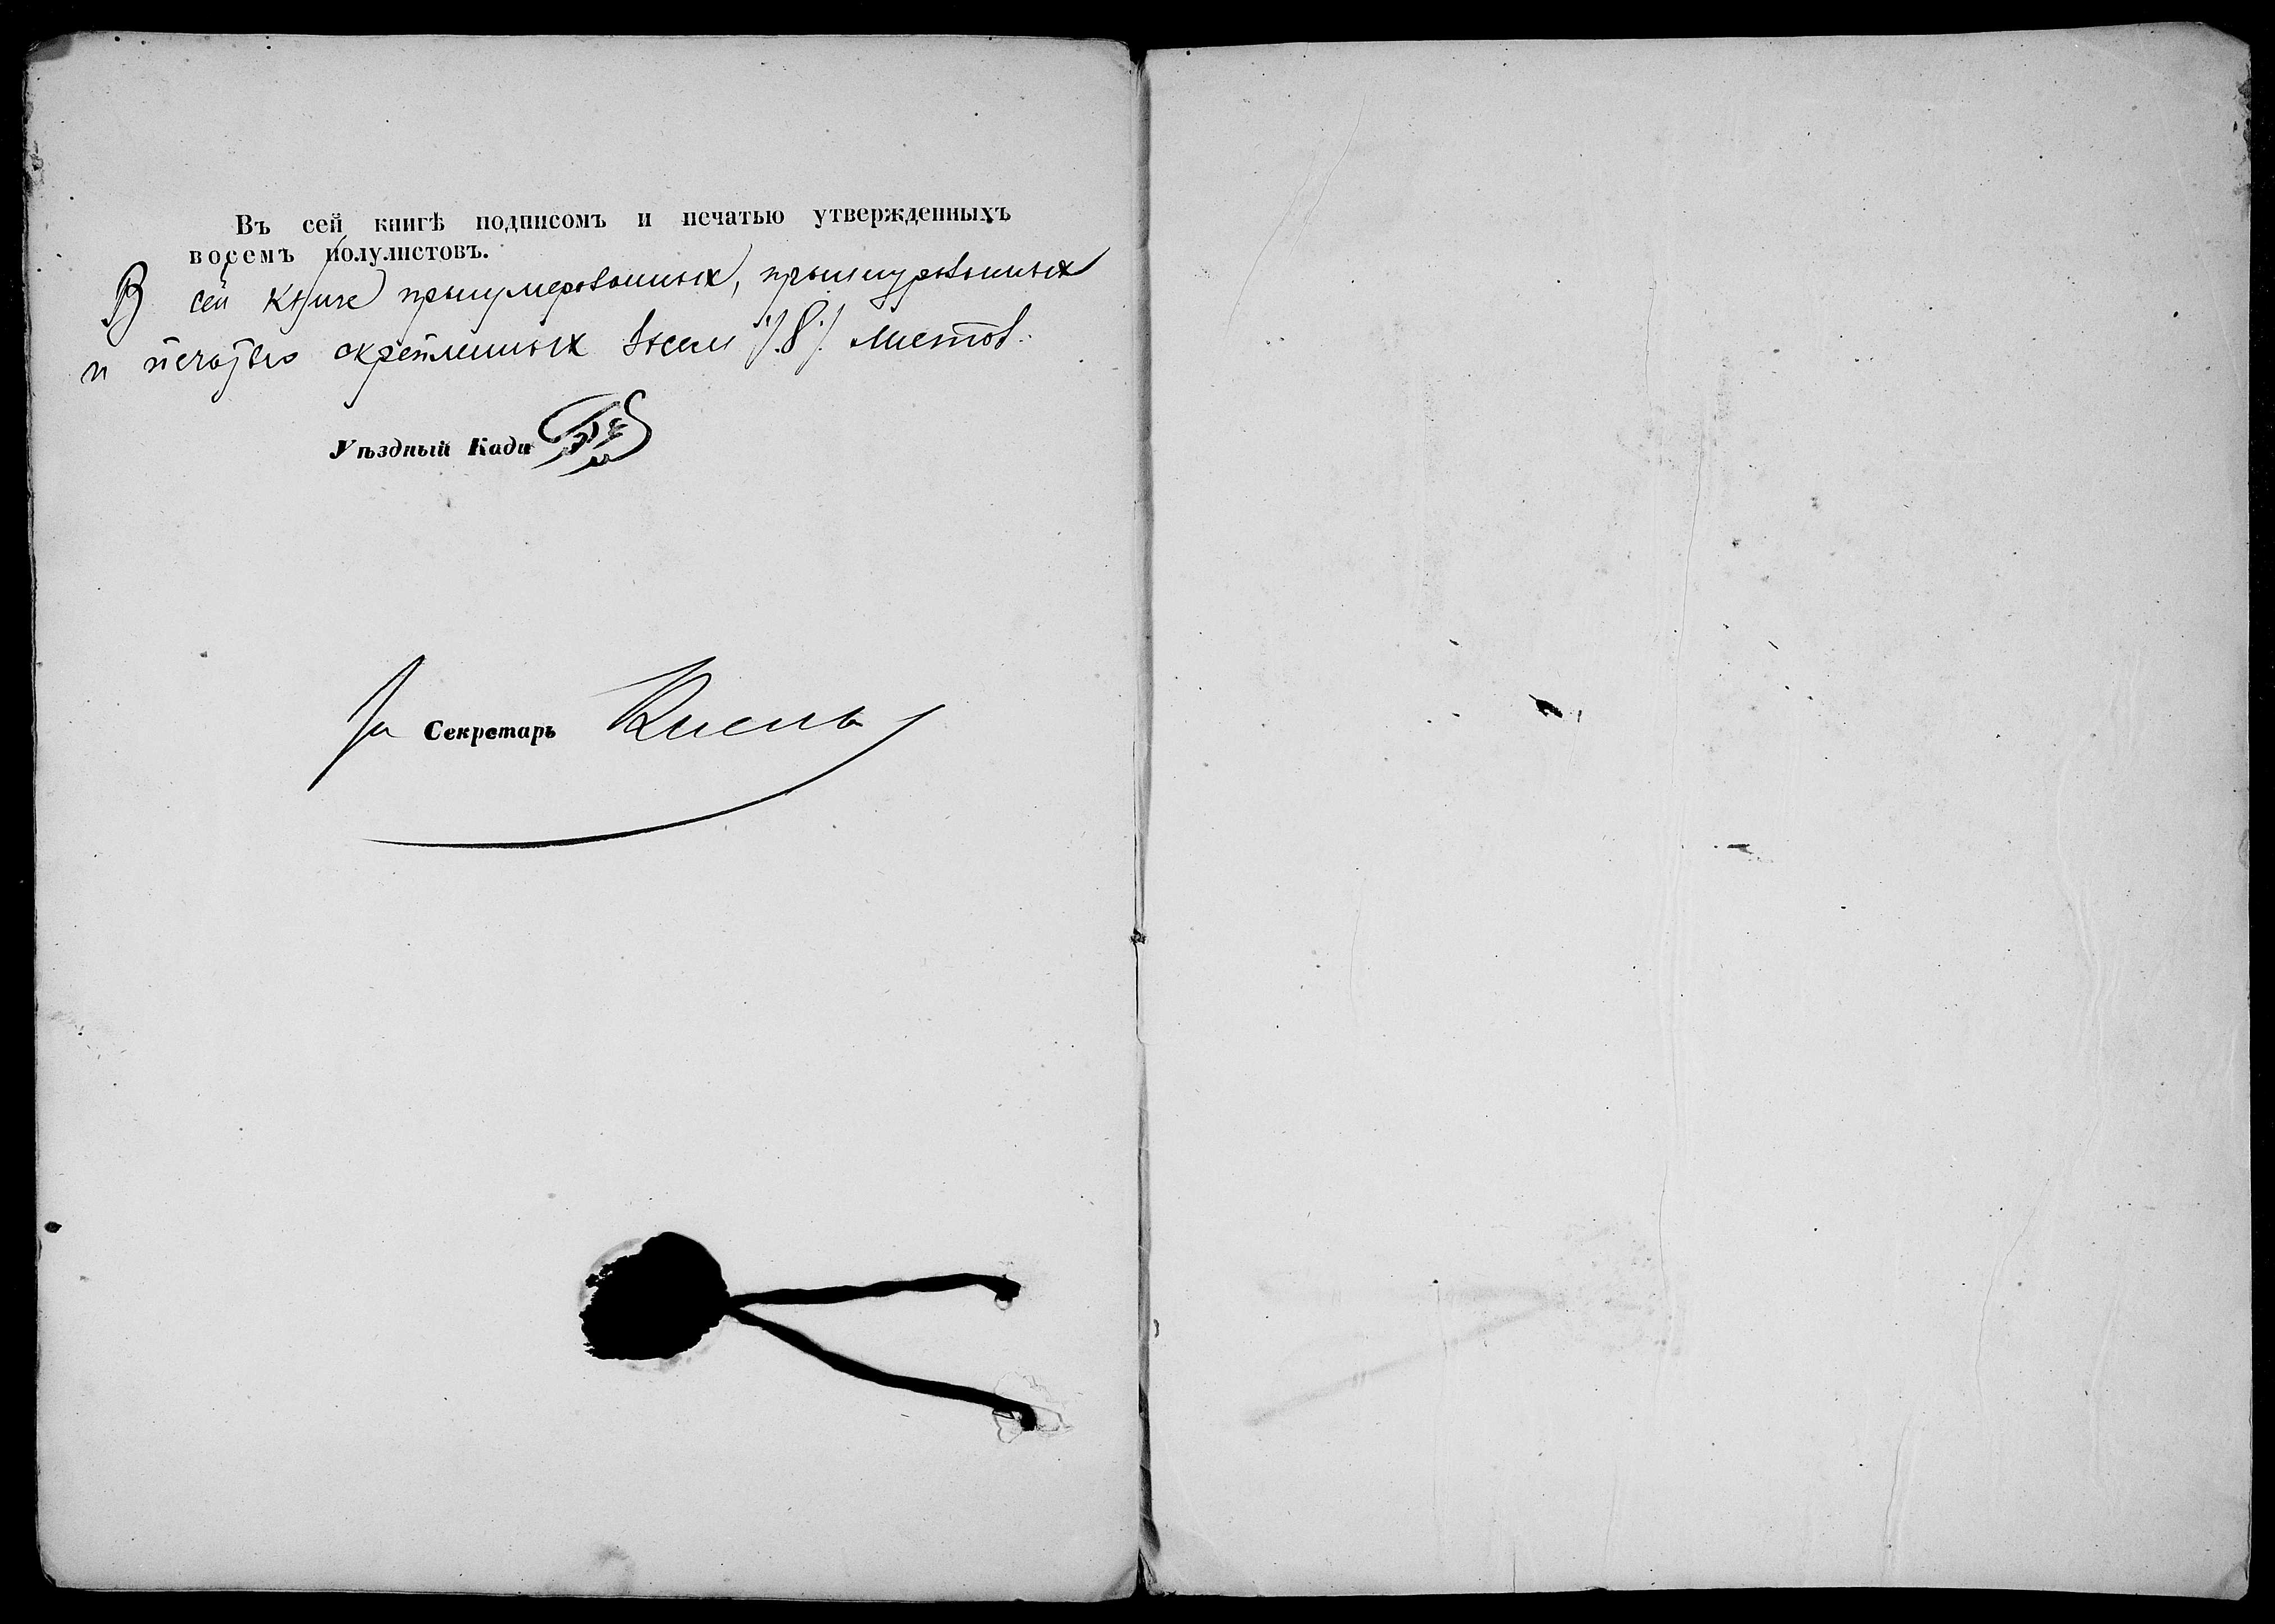 Въ сей книгѣ подписомъ и печатью утвержденныхъ
восемъ полулистовъ.
В сей книге пронумерованных, прошнурованных
и печатью скрепленных восем /.8./ листов.
Уѣздный Кади
За Секретарь